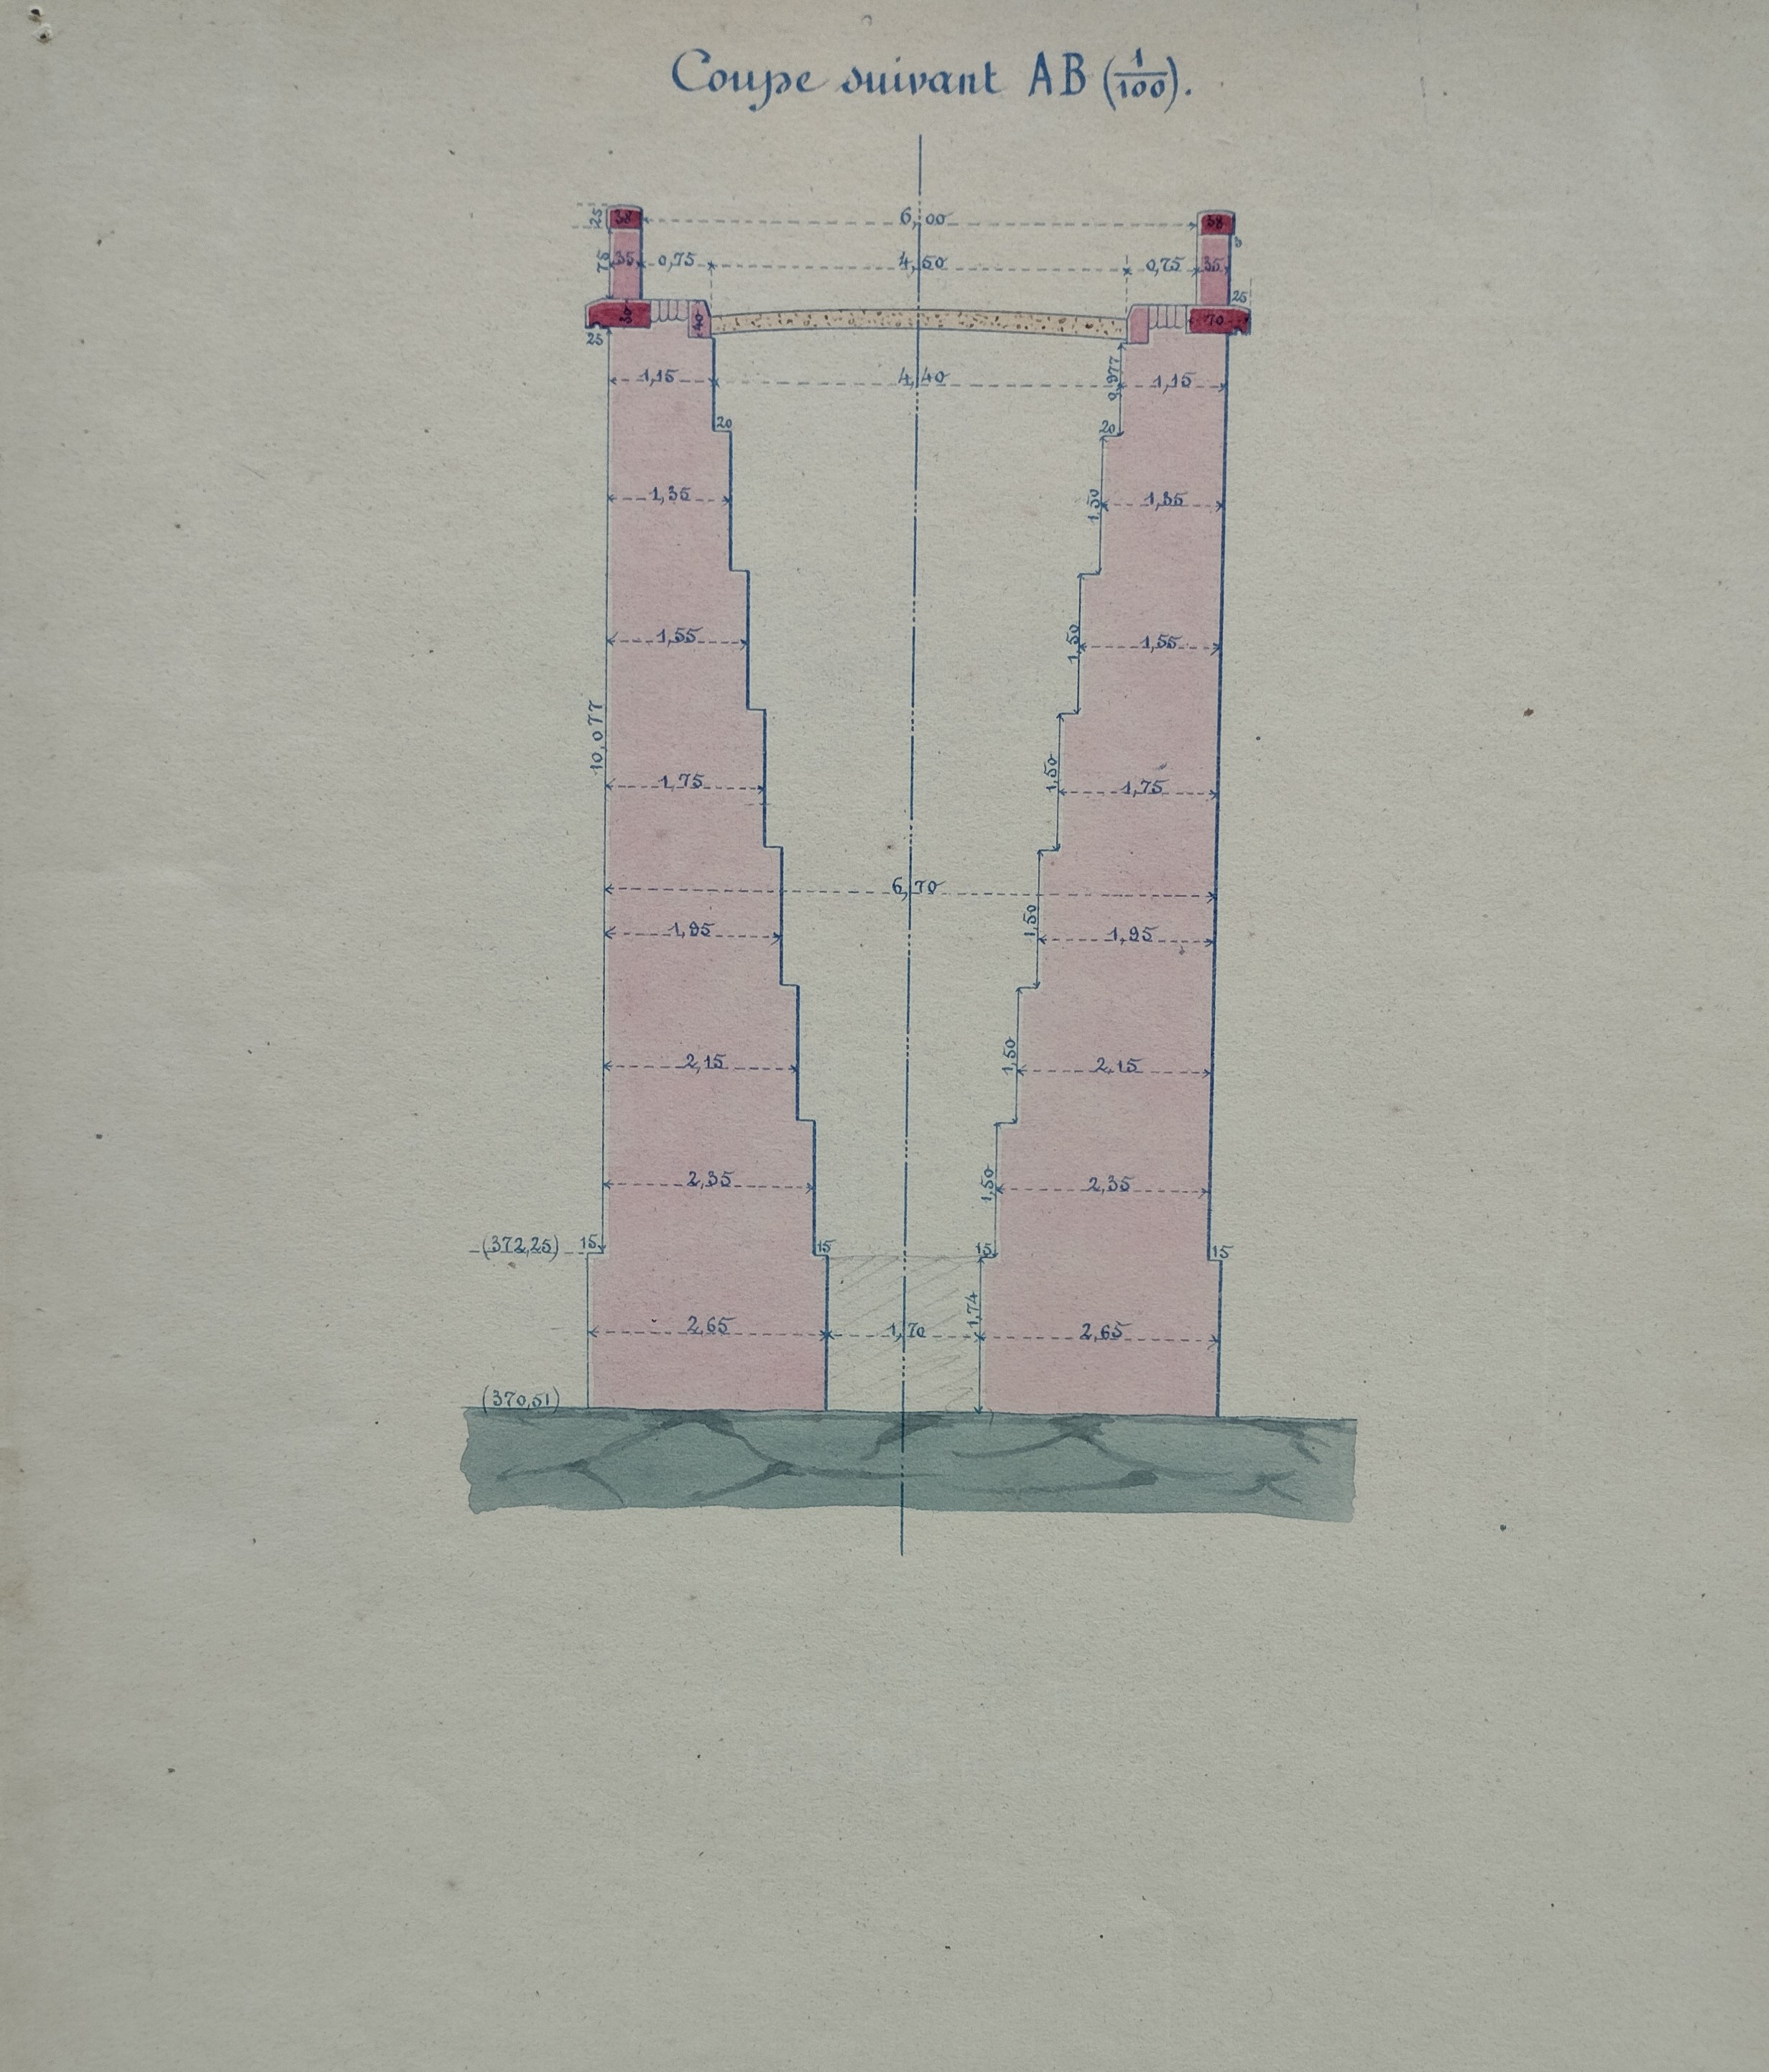 Coupe suivant AB (1/100).
25 38 6,00 38
3
75 35 0,75 4,50 0,75 35
25
30 40 70
25
1,15 4,40 0,977 1,15
20 20
1,35 1,50 1,35
1,55 1,50 1,55
10,077
1,75 1,50 1,75
6,70
1,95 1,50 1,95
2,15 1,50 2,15
2,35 1,50 2,35
(372,25) 15 15 15 15
2,65 1,70 1,74 2,65
(370,51)